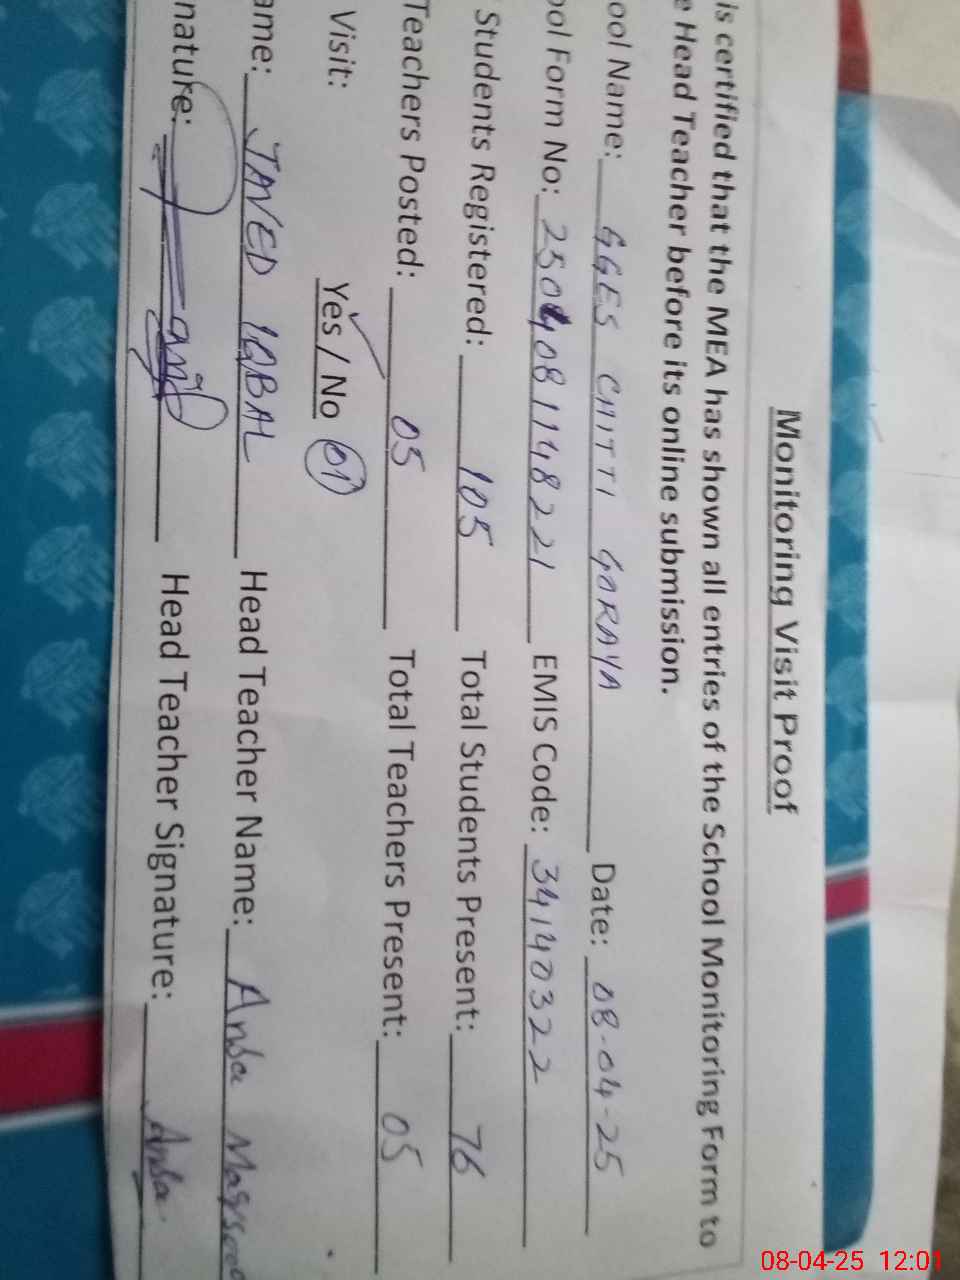 Monitoring Visit Proof
is certified that the MEA has shown all entries of the School Monitoring Form to
e Head Teacher before its online submission.
ool Name: GGES CHITTI GORAYA Date: 08-04-25
ool Form No: 2504081148221 EMIS Code: 34140322
Students Registered: 105 Total Students Present: 76
Teachers Posted: 05 Total Teachers Present: 05
Visit: Yes / No 01
ame: JAVED IQBAL Head Teacher Name: Ansa
nature: Head Teacher Signature: Ansa
08-04-25 12:01